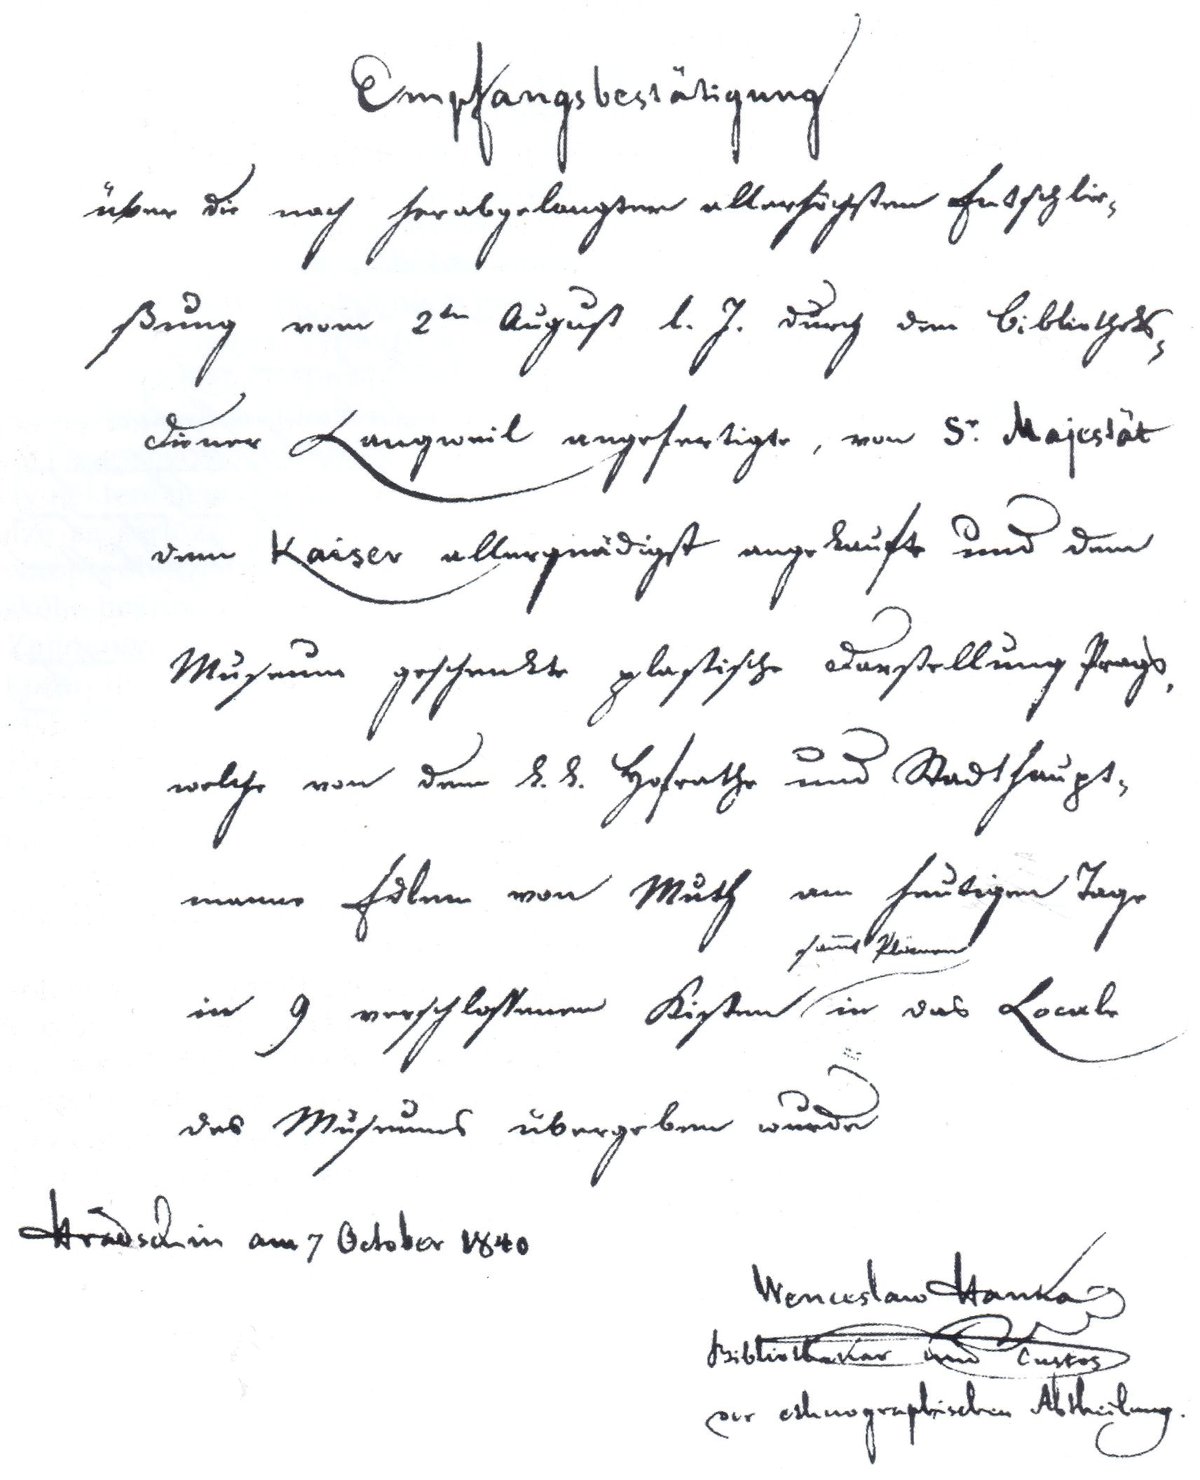 Empfangsbestätigung
über die nach herabgelangter allerhöchsten Entschlie-
ßung vom 2ten August l. J. durch den Bibliotheks-
diener Langweil angefertigte, von Sr. Majestät
dem Kaiser allergnädigst angekaufte und dem
Museum geschenkte plastische Darstellung Prags,
welche von dem k. k. Hofrathe und Stadthaupt-
manne Edlen von Muth am heutigen Tage
sammt Plänen
in 9 verschlossenen Kisten in das Locale
des Museums übergeben wurde
Hradschin am 7 October 1840
Wenceslaw Hanka
Bibliothekar und Custos
der ethnographischen Abtheilung.